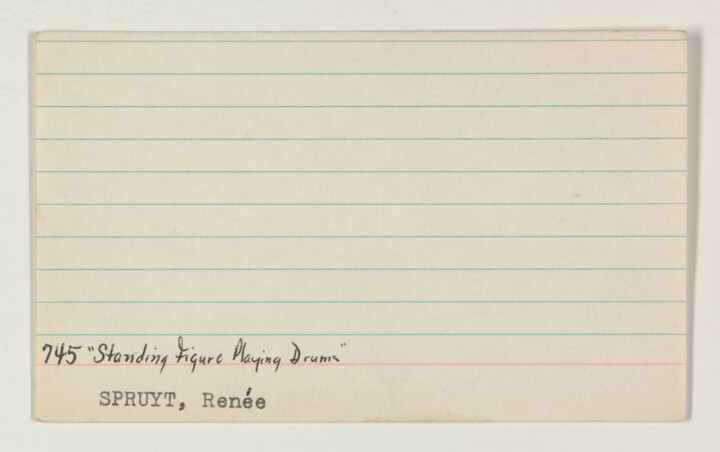 745 "Standing Figure Playing Drums"
SPRUYT, Renée